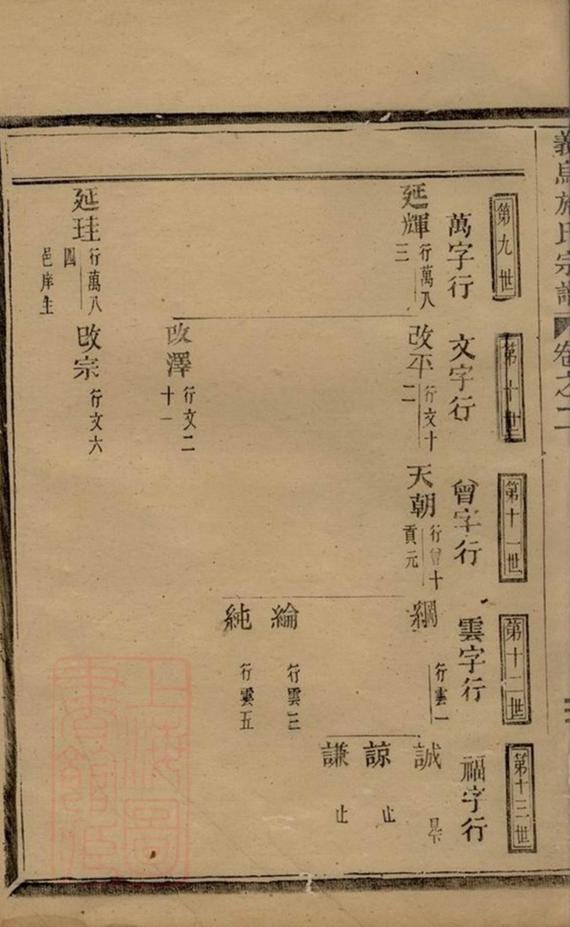 義烏施氏宗譜 卷之二
第九世
第十世
第十一世
第十二世
第十三世
萬字行
文字行
曾字行
雲字行
福字行
延輝 行萬八三
改平 行文十二
天朝 行曾十 貢元
綱 行雲一
誠
諒 止
謙 止
綸 行雲三
純 行雲五
改澤 行文二十一
延珪 行萬八四 邑庠生
改宗 行文六
上海圖書館藏